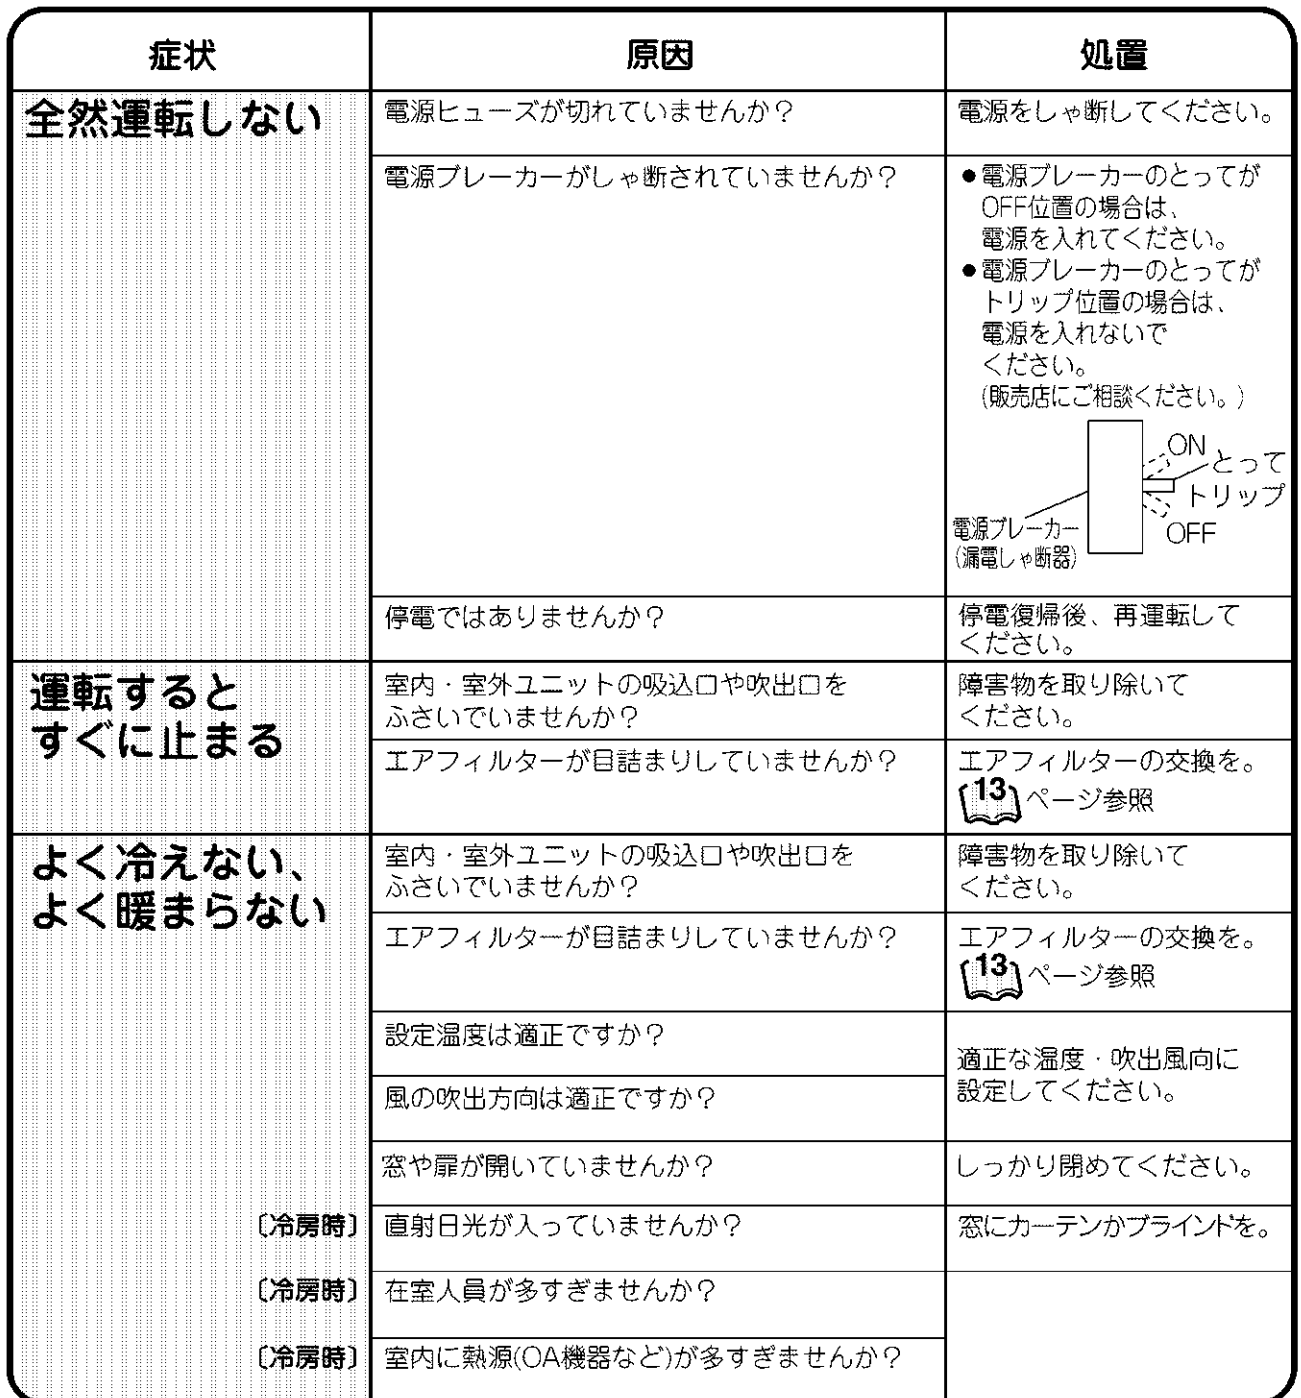 症状
原因
処置
全然運転しない
電源ヒューズが切れていませんか？
電源をしゃ断してください。
電源ブレーカーがしゃ断されていませんか？
●電源ブレーカーのとってが
OFF位置の場合は、
電源を入れてください。
●電源ブレーカーのとってが
トリップ位置の場合は、
電源を入れないで
ください。
(販売店にご相談ください。)
ON
とって
トリップ
OFF
電源ブレーカー
(漏電しゃ断器)
停電ではありませんか？
停電復帰後、再運転して
ください。
運転すると
すぐに止まる
室内・室外ユニットの吸込口や吹出口を
ふさいでいませんか？
障害物を取り除いて
ください。
エアフィルターが目詰まりしていませんか？
エアフィルターの交換を。
13 ページ参照
よく冷えない、
よく暖まらない
室内・室外ユニットの吸込口や吹出口を
ふさいでいませんか？
障害物を取り除いて
ください。
エアフィルターが目詰まりしていませんか？
エアフィルターの交換を。
13 ページ参照
設定温度は適正ですか？
風の吹出方向は適正ですか？
適正な温度・吹出風向に
設定してください。
窓や扉が開いていませんか？
しっかり閉めてください。
〔冷房時〕
直射日光が入っていませんか？
窓にカーテンかブラインドを。
〔冷房時〕
在室人員が多すぎませんか？
〔冷房時〕
室内に熱源(OA機器など)が多すぎませんか？